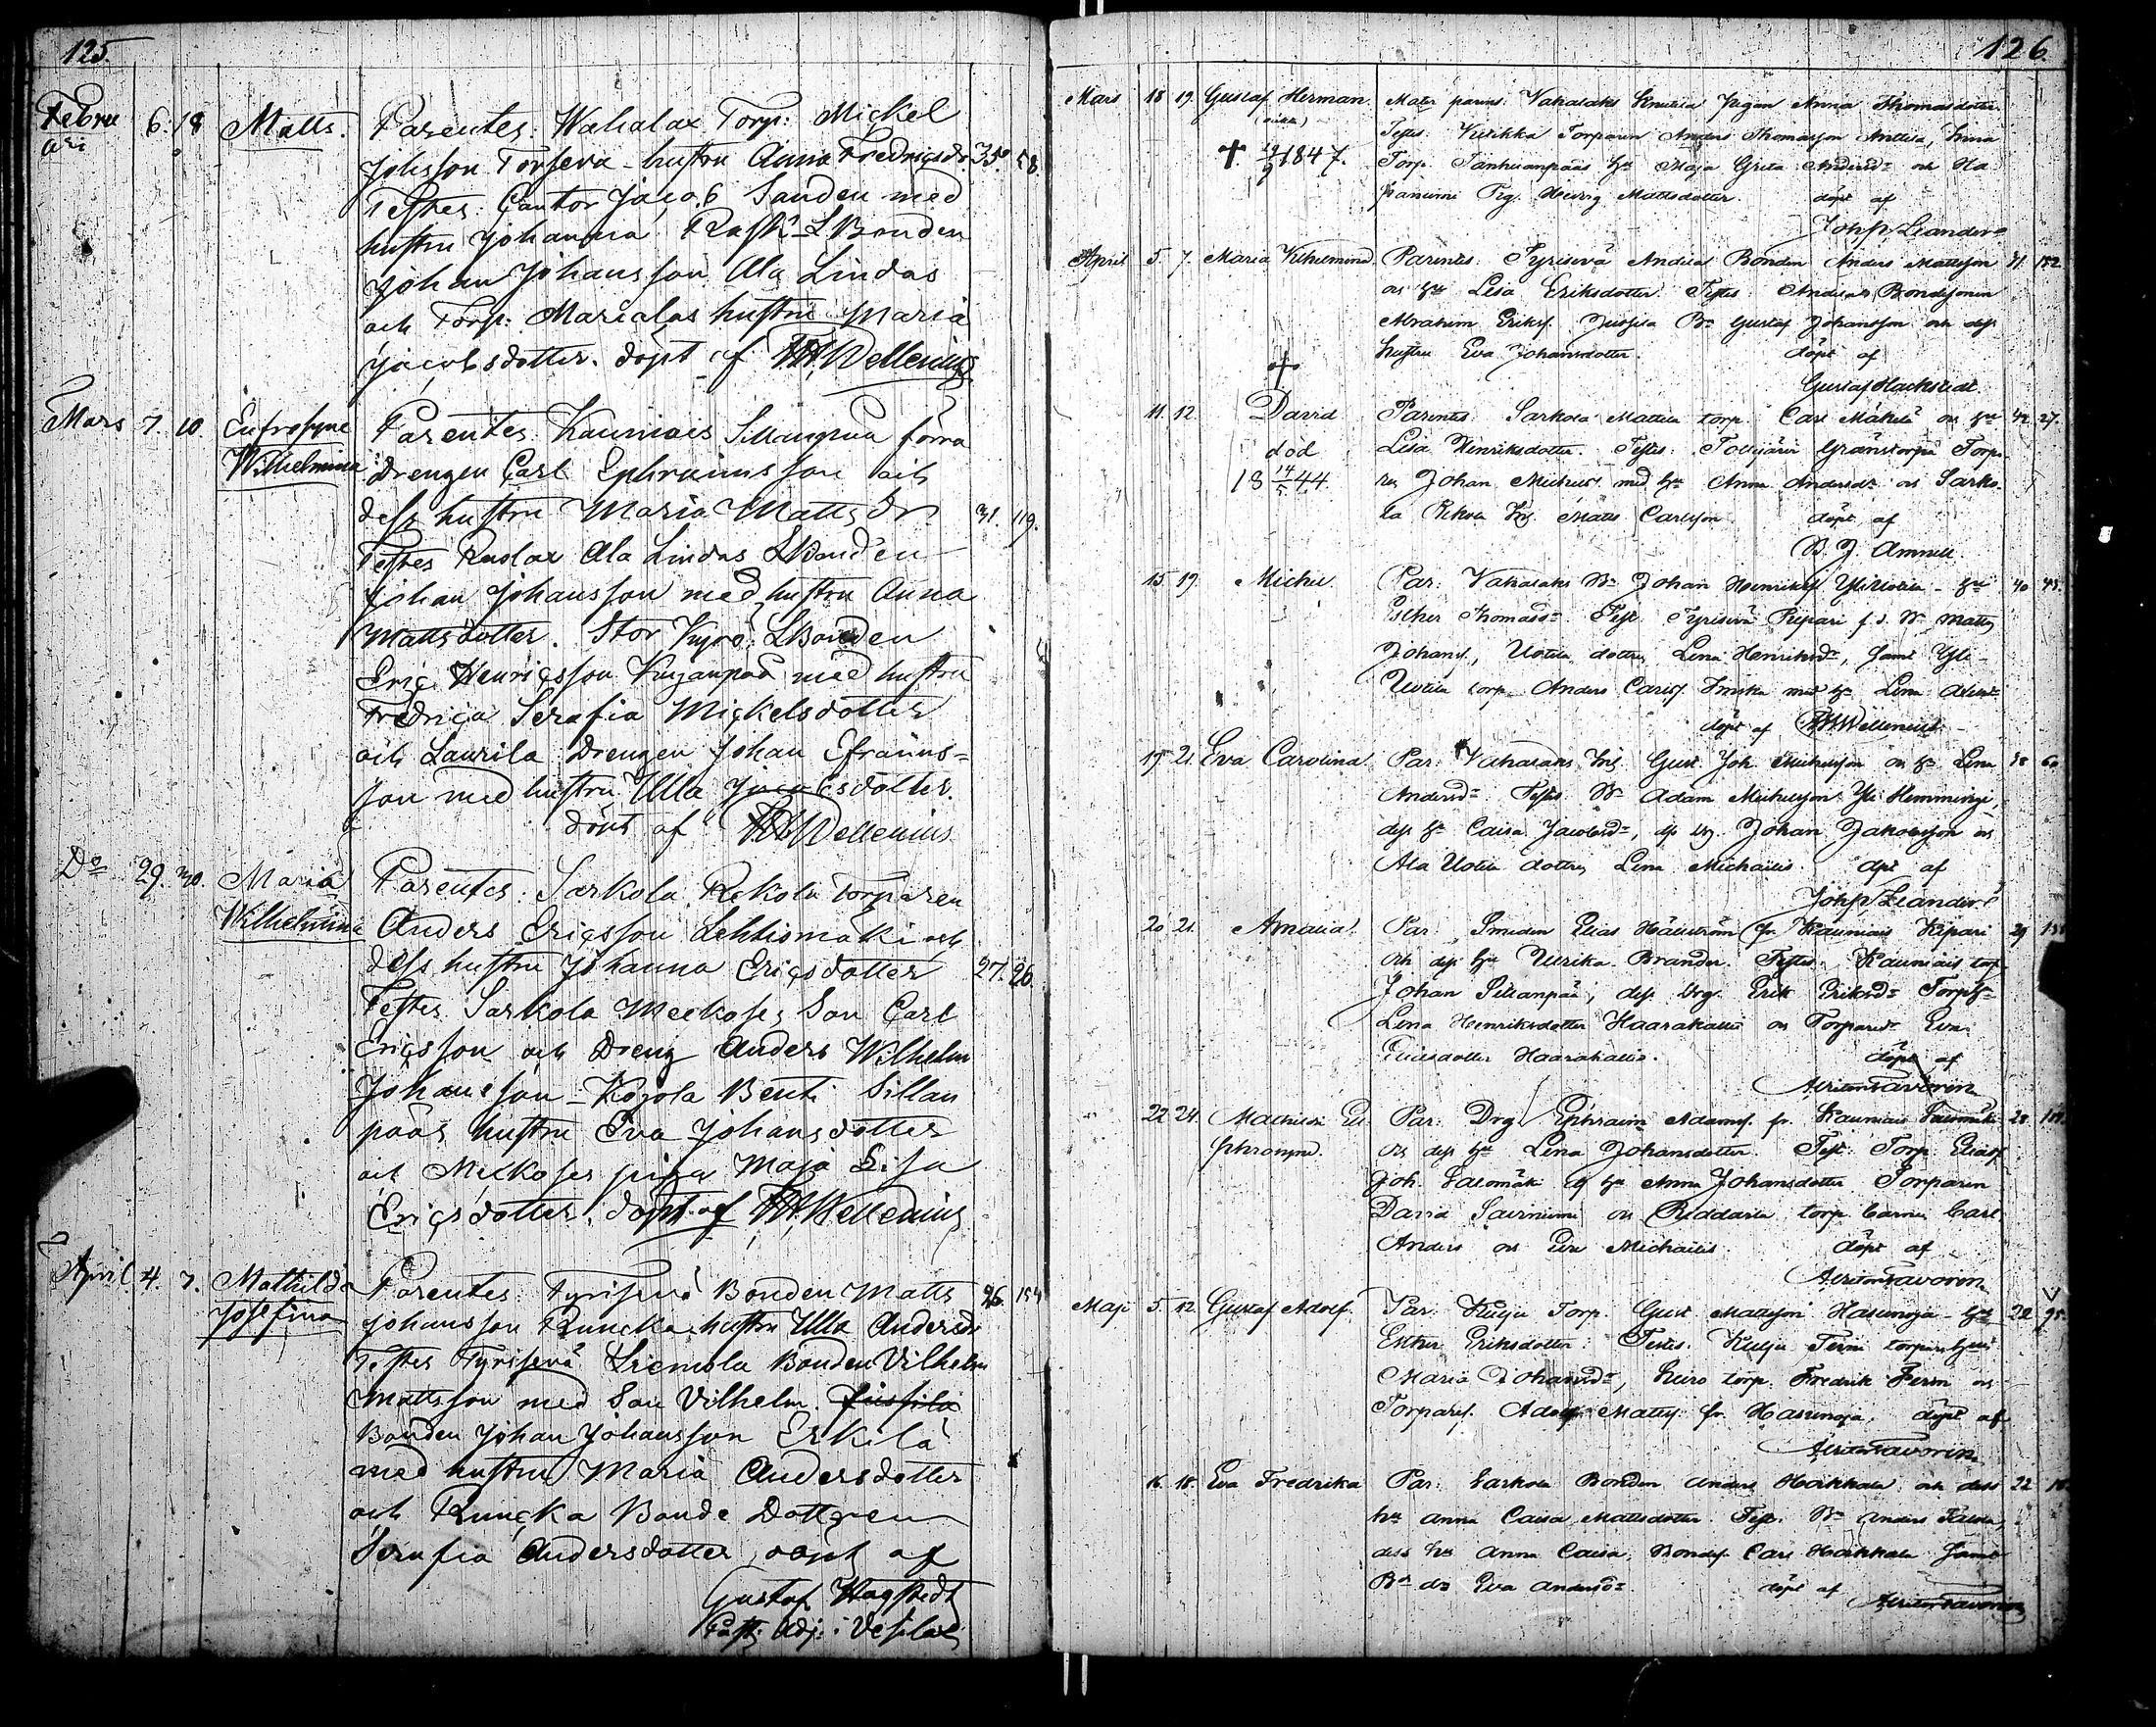 125.
Febru
ari 6. 18 Matts. Parentes: Wahalax Torp: Mickel
Johsson Torseva - hustru Anna Fredricsdr 35. 58.
Testes: Cantor Jacob Sanden med
hustru Johanna
Johan Johansson Ala Lindas
och Torp: Marialas hustru Maria
Jacobsdotter. döpt af Wellenius
Mars 7. 10. Eufrosyne Parentes: Kauniais Sillanpää förra
Wilhelmina Drengen Carl Ephraimsson och
dess hustru Maria Matts Dr. 31. 119.
Testes Ala Lindas LBonden
Johan Johansson med hustru Anna
Mattsdotter. Stor Kyro LBonden
Eric Henricsson med hustru
Fredrica Serafia Mickelsdotter
och Laurila Drengen Johan Efraims=
son med hustru Ulla Jacobsdotter.
döpt af Wellenius
Do 29. 30. Maria Parentes: Sarkola Rekola Torparen
Wilhelmina Anders Ericsson Lehtismäki och
dess hustru Johanna Ericsdotter 27. 26.
Testes Sarkola Meckoses Son Carl
Ericsson och Dreng Anders Wilhelm
Johansson - Benti Sillan
pääs hustru Eva Johansdotter
och Meckoses piga Maja Lisa
Ericsdotter. döpt af Wellenius
April 4. 7. Mathilda Parentes: Tyrisevä Bonden Matts 26. 154
Josefina Johansson Runcka hustru Ulla Andersdr
Testes Tyrisevä Liemola Bonden Vilhelm
Mattsson med Son Vilhelm.
Bonden Johan Johansson Erkilä
med hustru Maria Andersdotter
och Runcka Bonde Dottren
Serafia Andersdotter, döpt af
Gustaf Hagstedt
Past. Adj: i Vesilax
126.
Mars 18 19. Gustaf Herman. Mater parens: Vahalaks Knutila Pigan Anna Thomasdotter.
Testes: Torparen Anders Thomasson Anttila,
† 19/9 1847. Torp. Hu Maja Greta Andersdr och
Pig. Hedvig Mattsdotter. döpt af
Joh. Leander
April 5. 7. Maria Vilhelmina. Parentes: Tyrisevä Andila Bonden Anders Mattsson 31. 152
och hu Lisa Eriksdotter. Testes: Andilas Bondesonen
Abraham Eriks. Jussila Bn Gustaf Johansson och dess
hustru Eva Johansdotter. döpt af
Gustaf Hackstedt
†
11. 12. David Parentes: Sarkola Mattila torp. Carl Mäkelä och hu 42. 27.
död Lisa Henriksdotter. Testes: Tottijärvi Torpa
18 14/5 44. ren Johan Michels. med hu Anna Andersdr och Sarko-
la Rekola Matts Carlsson. döpt af
B. J. Amnell.
15. 19. Michel Par: Vahalaks Bn Johan Henriks. Yli Uotila - hu 40 45.
Esther Thomasdr. Test. Tyrisevä Riipari f.d. Bn Matts
Johans., Uotila dotter Lena Henriksdr, samt Yli-
Uotila torp. Anders Carls. med hu Lena
döpt af Wellenius
17 21. Eva Carolina Par: Vahalaks Gust. Joh. Michelsson och hu Lena 38 60
Andersdr Testes: Bn Adam Michelsson Yli Hemminge,
dess hu Caisa Jacobsdr, Johan Jakobsson och
Ala Uotila dotter Lena Michaelis. döpt af
Joh. Leander
20 21. Amalia. Par: Smeden Elias Hällström fr. Kauniais Riipari 29
och dess hu Ulrika Brander. Testes: Kauniais torp.
Johan Sillanpää, dess Erik Eriksdr Torp
Lena Henriksdotter Haarakallio och Torpared. Eva
Ericsdotter Haarakallio. döpt af
Favorin
22 24. Mathilda Eu Par: Drg Ephraim Adams. fr. Kauniais Salomäki 28
phrosyne. och dess hu Lena Johansdotter. Test: Torp. Elias
Joh. Salomäki hu Anna Johansdotter Torparen
David Saviniemi och torp. Carl
Anders och Eva Michaelis. döpt af
Favorin
Maji 5. 12. Gustaf Adolf. Par: Kulju Torp. Gust. Mattsson Hasunoja - hu 22 95.
Esther Eriksdotter. Testes: Kulju Fermi torpar
Maria Johansdr, torp. Fredrik Ferm och
Torpares. Adolf Matts. fr. Hasunoja. döpt af
Favorin
16. 18. Eva Fredrika Par: Sarkola Bonden Anders Horkkala och dess 22
hu Anna Caisa Mattsdotter. Test. Bn Anders
dess hu Anna Caisa, Bondes. Carl Horkkala samt
Bn do Eva Andersdr. döpt af
Favorin